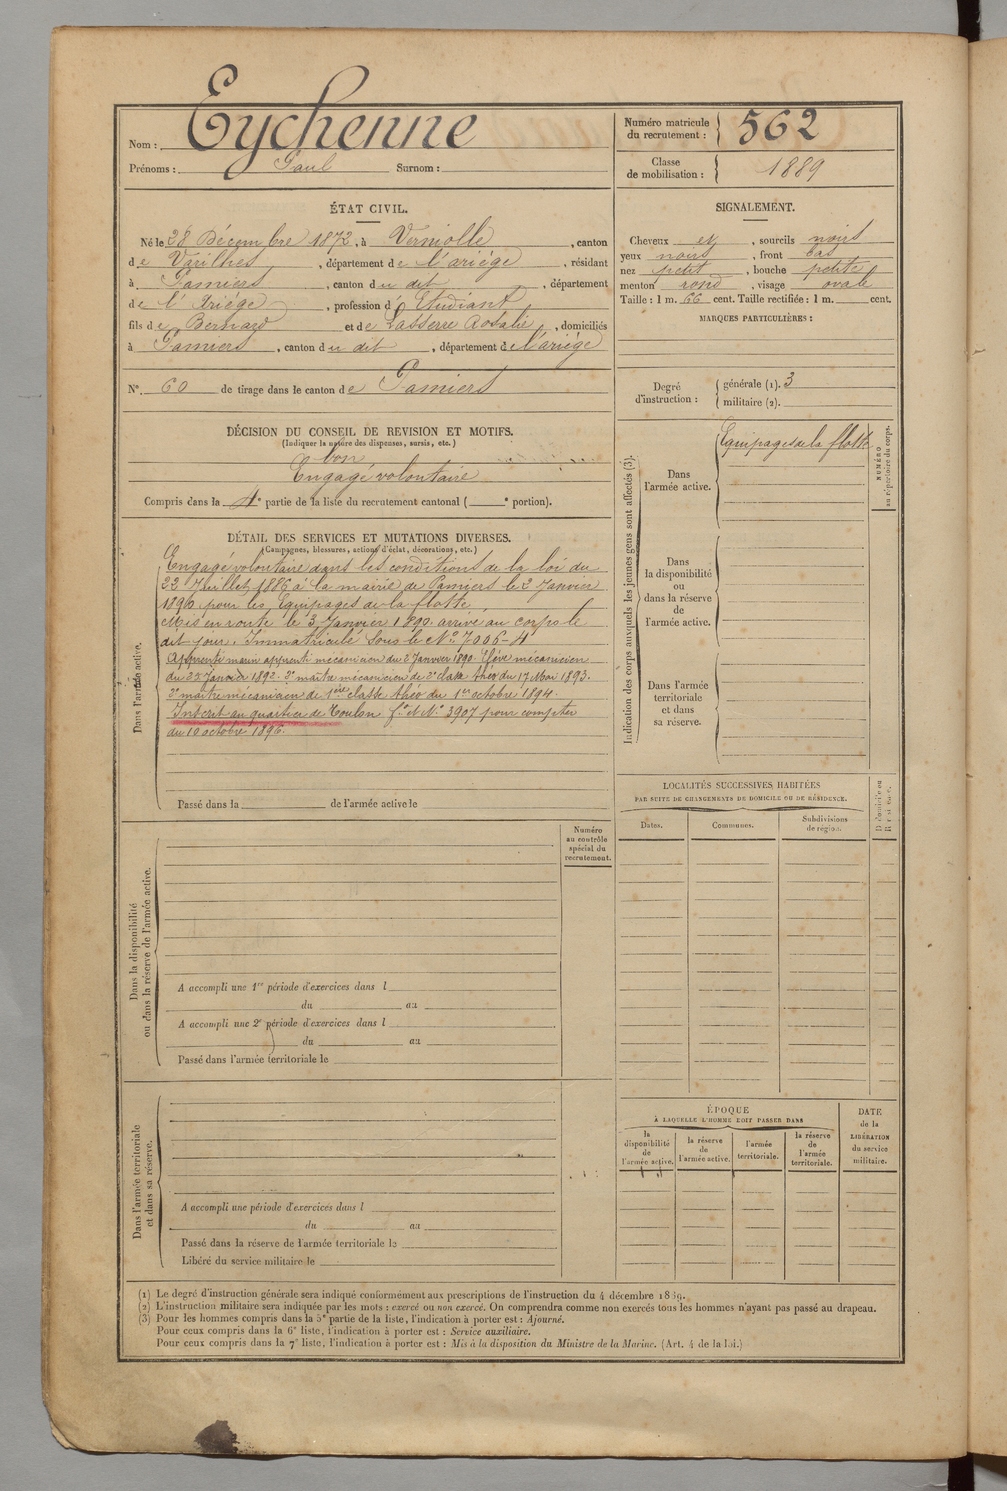 Nom : Eychenne
Prénoms : Paul Surnom :
Numéro matricule du recrutement : 562
Classe de mobilisation : 1889
ÉTAT CIVIL.
Né le 28 Décembre 1872, à Verniolle, canton
de Varilhes, département de l'ariège, résidant
à Pamiers, canton du dit, département
de l'Ariége, profession d'Etudiant
fils de Bernard et de Lasserre Rosalie, domiciliés
à Pamiers, canton du dit, département de l'ariége
N° 60 de tirage dans le canton de Pamiers
DÉCISION DU CONSEIL DE REVISION ET MOTIFS.
(Indiquer la nature des dispenses, sursis, etc.)
bon
Engagé volontaire
Compris dans la 4e partie de la liste du recrutement cantonal ( e portion).
SIGNALEMENT.
Cheveux et, sourcils noirs
yeux noirs, front bas
nez petit, bouche petite
menton rond, visage ovale
Taille : 1 m. 66 cent. Taille rectifiée : 1 m. cent.
MARQUES PARTICULIÈRES :
Degré d'instruction : générale (1). 3
militaire (2).
DÉTAIL DES SERVICES ET MUTATIONS DIVERSES.
(Campagnes, blessures, actions d'éclat, décorations, etc.)
Dans l'armée active.
Engagé volontaire dans les conditions de la loi du
22 Juillet 1886 à la mairie de Pamiers le 2 Janvier
1890 pour les Equipages de la flotte
Mis en route le 3 Janvier 1890. arrivé au corps le
dit jour. Immatriculé sous le N° 7006-4
Apprenti marin apprenti mécanicien du 2 Janvier 1890. Elève mécanicien
du 22 Janvier 1892. 2e maître mécanicien de 2e classe théor du 17 Mai 1893.
2e maître mécanicien de 1ère classe théor du 1er octobre 1894.
Inscrit au quartier de Toulon fo et No 3907 pour compter
du 10 octobre 1896.
Passé dans la de l'armée active le
Indication des corps auxquels les jeunes gens sont affectés (3).
Dans l'armée active.
Equipages de la flotte
NUMÉRO au répertoire du corps.
Dans la disponibilité ou dans la réserve de l'armée active.
Dans l'armée territoriale et dans sa réserve.
LOCALITÉS SUCCESSIVES HABITÉES
PAR SUITE DE CHANGEMENTS DE DOMICILE OU DE RÉSIDENCE.
Dates. Communes. Subdivisions de région. Domicile ou Résidence.
Dans la disponibilité ou dans la réserve de l'armée active.
Numéro au contrôle spécial du recrutement.
A accompli une 1re période d'exercices dans l
du au
A accompli une 2e période d'exercices dans l
du au
Passé dans l'armée territoriale le
Dans l'armée territoriale et dans sa réserve.
A accompli une période d'exercices dans l
du au
Passé dans la réserve de l'armée territoriale le
Libéré du service militaire le
ÉPOQUE
À LAQUELLE L'HOMME DOIT PASSER DANS
la disponibilité de l'armée active. la réserve de l'armée active. l'armée territoriale. la réserve de l'armée territoriale.
DATE de la LIBÉRATION du service militaire.
(1) Le degré d'instruction générale sera indiqué conformément aux prescriptions de l'instruction du 4 décembre 1889.
(2) L'instruction militaire sera indiquée par les mots : exercé ou non exercé. On comprendra comme non exercés tous les hommes n'ayant pas passé au drapeau.
(3) Pour les hommes compris dans la 5e partie de la liste, l'indication à porter est : Ajourné.
Pour ceux compris dans la 6e liste, l'indication à porter est : Service auxiliaire.
Pour ceux compris dans la 7e liste, l'indication à porter est : Mis à la disposition du Ministre de la Marine. (Art. 4 de la loi.)